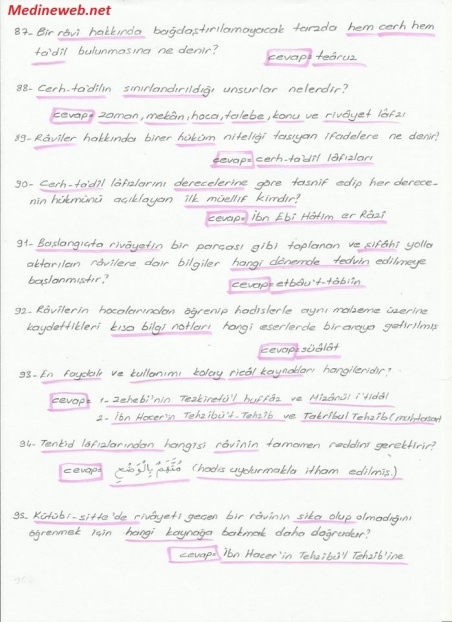 Medineweb.net
87- Bir râvi hakkında bağdaştırılamayacak tarzda hem cerh hem
ta'dîl bulunmasına ne denir? cevap= teâruz
88- Cerh-ta'dîlin sınırlandırıldığı unsurlar nelerdir?
cevap= zaman, mekân, hoca, talebe, konu ve rivâyet lâfzı
89- Râvîler hakkında birer hüküm niteliği taşıyan ifadelere ne denir?
cevap= cerh-ta'dîl lâfızları
90- Cerh-ta'dîl lâfızlarını derecelerine göre tasnif edip her derece-
nin hükmünü açıklayan ilk müellif kimdir?
cevap= İbn Ebî Hâtim er Râzî
91- Başlangıçta rivâyetin bir parçası gibi toplanan ve şifâhî yolla
aktarılan râvilere dair bilgiler hangi dönemde tedvin edilmeye
başlanmıştır? cevap= etbâu't-tâbiîn
92- Râvîlerin hocalarından öğrenip hadislerle aynı malzeme üzerine
kaydettikleri kısa bilgi notları hangi eserlerde bir araya getirilmiş
cevap= süâlât
93- En faydalı ve kullanımı kolay ricâl kaynakları hangileridir?
cevap= 1- Zehebî'nin Tezkiretü'l huffâz ve Mîzânül i'tidâl
2- İbn Hacer'in Tehzîbü't-Tehzîb ve Takrîbul Tehzîb (muhtasar
94- Tenkid lâfızlarından hangisi râvînin tamamen reddini gerektirir?
cevap= مُتَّهَمٌ بِالْوَضْعِ (hadis uydurmakla itham edilmiş.)
95- Kütübi-sitte'de rivâyeti geçen bir râvînin sika olup olmadığını
öğrenmek için hangi kaynağa bakmak daha doğrudur?
cevap= İbn Hacer'in Tehzîbü'l Tehzîb'ine